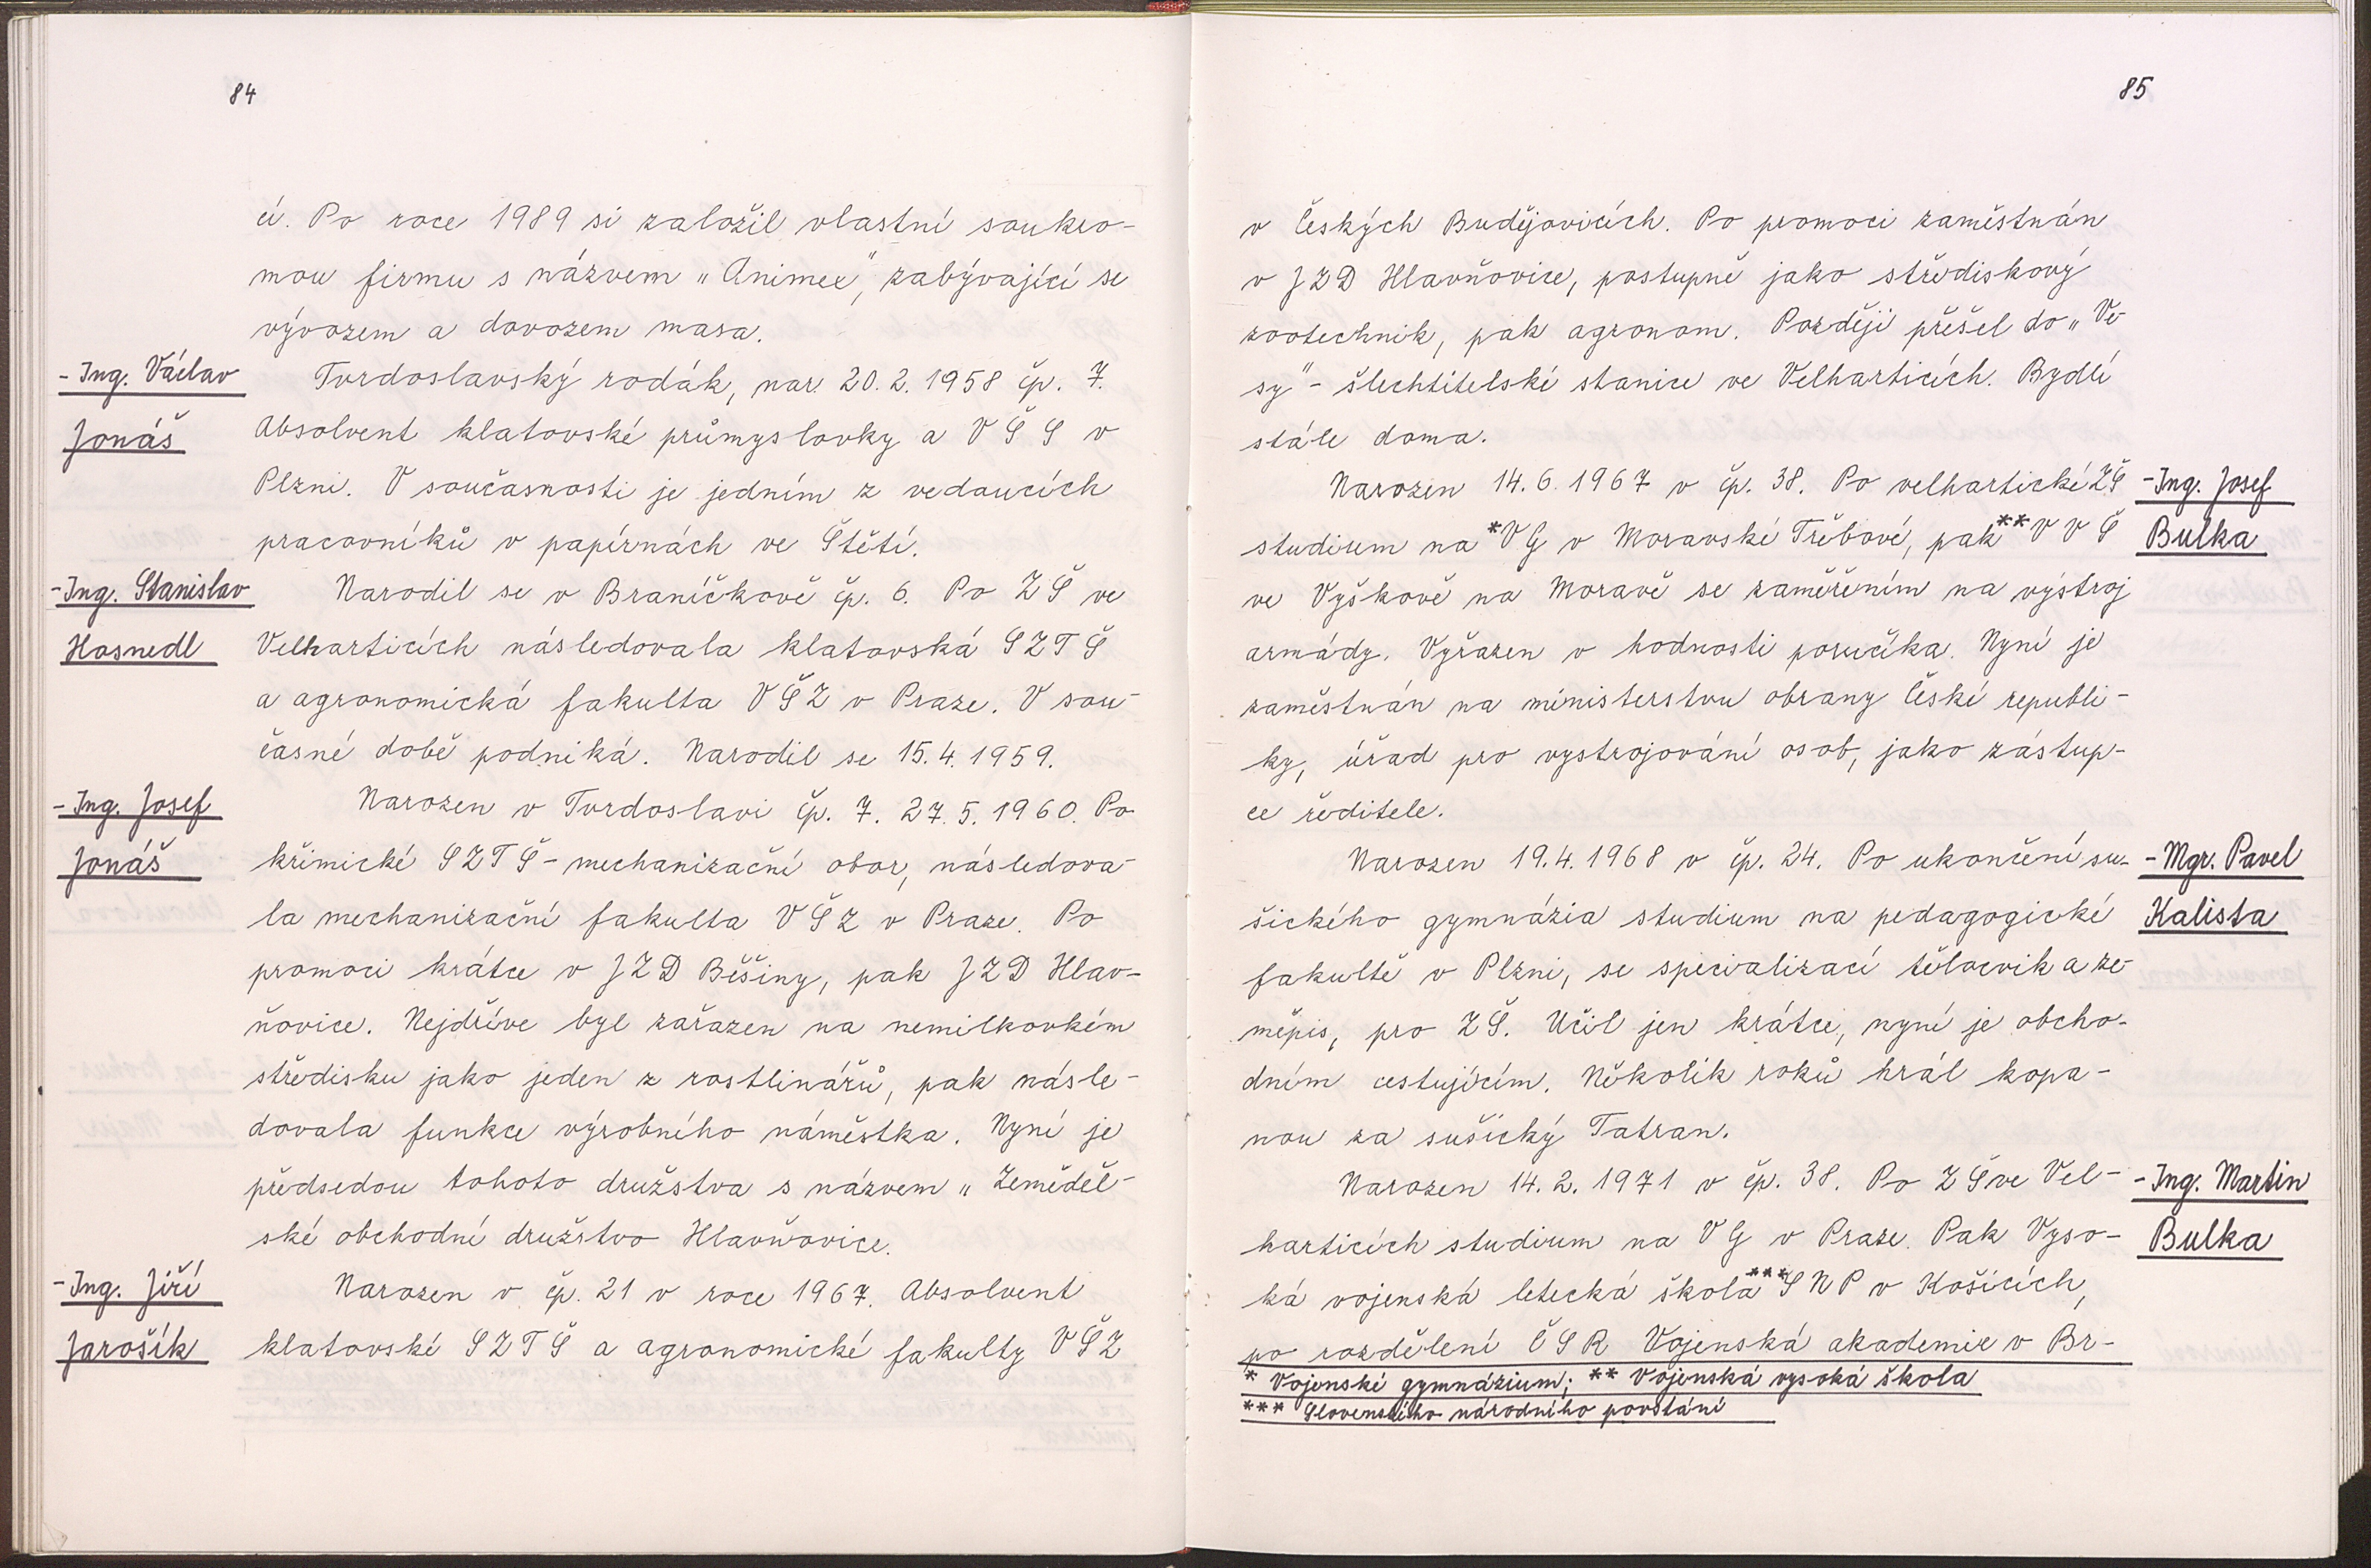 84
cí. Po roce 1989 si založil vlastní soukro-
mou firmu s názvem „Animex", zabývající se
vývozem a dovozem masa.
- Ing. Václav
Jonáš
Tvrdoslavský rodák, nar. 20. 2. 1958 čp. 7.
Absolvent klatovské průmyslovky a V Š S v
Plzni. V současnosti je jedním z vedoucích
pracovníků v papírnách ve Štětí.
- Ing. Stanislav
Hosnedl
Narodil se v Braníčkově čp. 6. Po ZŠ ve
Velharticích následovala klatovská SZTŠ
a agronomická fakulta VŠZ v Praze. V sou-
časné době podniká. Narodil se 15. 4. 1959.
- Ing. Josef
Jonáš
Narozen v Tvrdoslavi čp. 7. 27. 5. 1960. Po
křimické SZTŠ - mechanizační obor, následova-
la mechanizační fakulta VŠZ v Praze. Po
promoci krátce v JZD Běšiny, pak JZD Hlav-
ňovice. Nejdříve byl zařazen na nemilkovkém
středisku jako jeden z rostlinářů, pak násle-
dovala funkce výrobního náměstka. Nyní je
předsedou tohoto družstva s názvem „ Zeměděl-
ské obchodní družstvo Hlavňovice.
- Ing. Jiří
Jarošík
Narozen v čp. 21 v roce 1967. Absolvent
klatovské SZTŠ a agronomické fakulty VŠZ
85
v Českých Budějovicích. Po promoci zaměstnán
v JZD Hlavňovice, postupně jako střediskový
zootechnik, pak agronom. Později přešel do „ Ve-
sy" - šlechtitelské stanice ve Velharticích. Bydlí
stále doma.
Narozen 14. 6. 1967 v čp. 38. Po velhartické ZŠ
studium na *VG v Moravské Třebové, pak **V V Š
ve Vyškově na Moravě se zaměřením na výstroj
armády. Vyřazen v hodnosti poručíka. Nyní je
zaměstnán na ministerstvu obrany České republi-
ky, úřad pro vystrojování osob, jako zástup-
ce ředitele.
- Ing. Josef
Bulka
Narozen 19. 4. 1968 v čp. 24. Po ukončení su-
šického gymnázia studium na pedagogické
fakultě v Plzni, se specializací tělocvik a ze-
měpis, pro ZŠ. Učil jen krátce, nyní je obcho-
dním cestujícím. Několik roků hrál kopa-
nou za sušický Tatran.
- Mgr. Pavel
Kalista
Narozen 14. 2. 1971 v čp. 38. Po ZŠ ve Vel-
harticích studium na VG v Praze. Pak Vyso-
ká vojenská letecká škola ***SNP v Košicích,
po rozdělení ČSR Vojenská akademie v Br-
- Ing. Martin
Bulka
* Vojenské gymnázium; ** Vojenská vysoká škola
*** Slovenského národního povstání